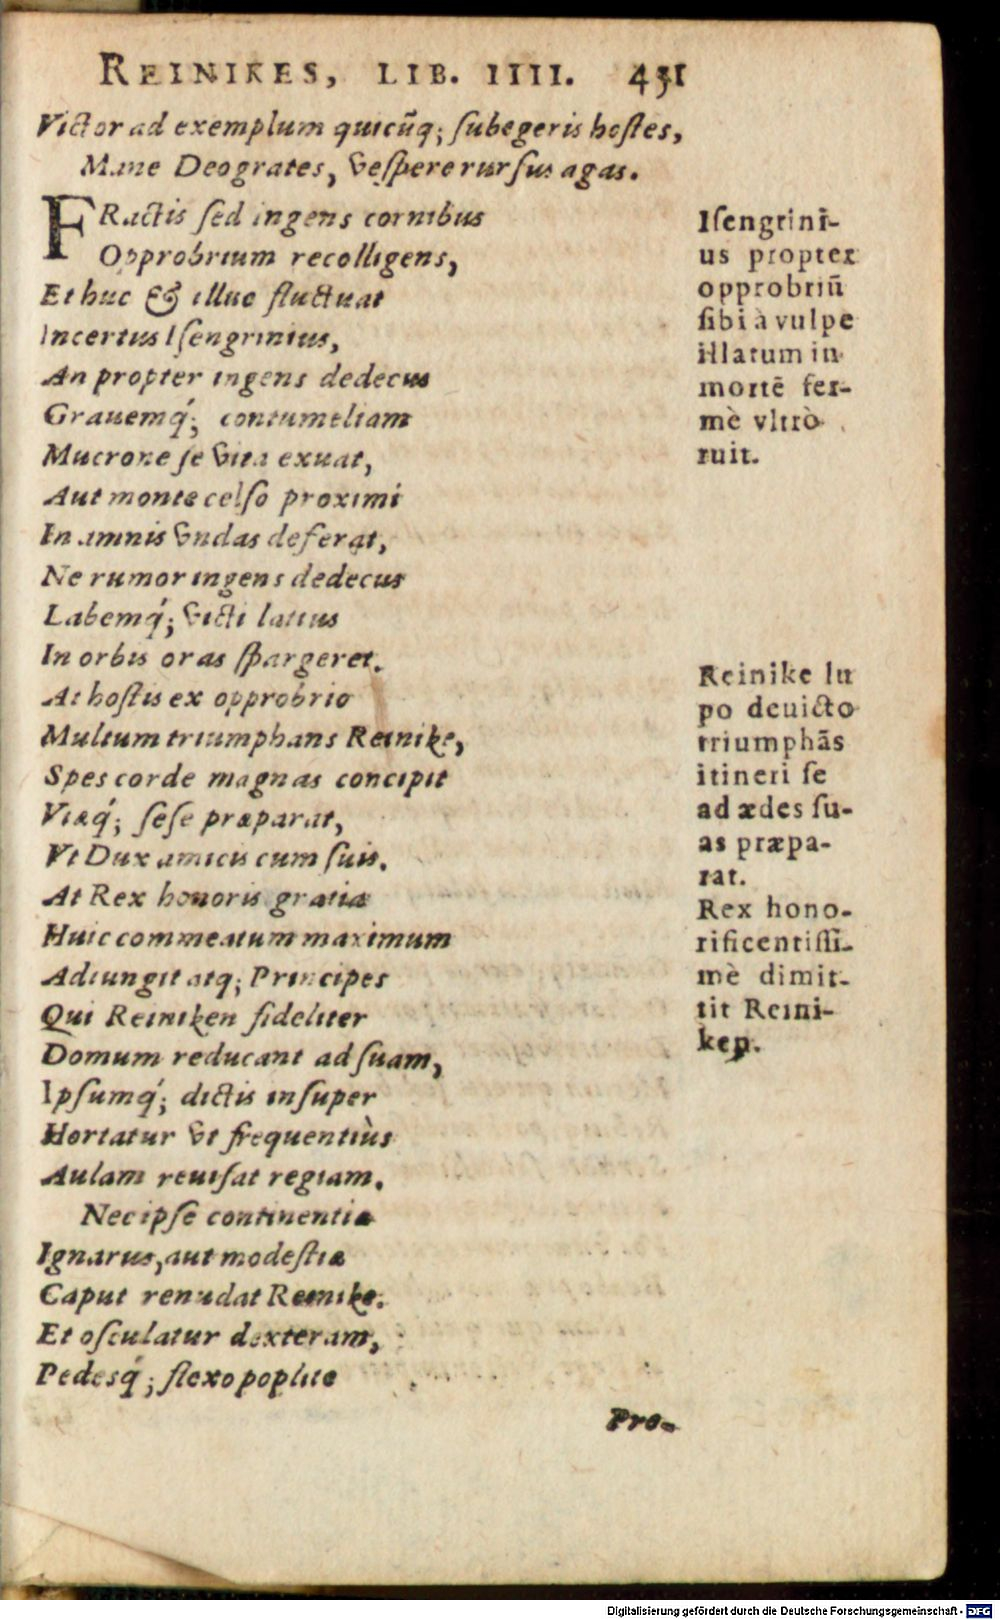 REINIKES, LIB. IIII. 431
Victor ad exemplum quicũq; ſubegeris hoſtes,
Mane Deogrates, veſpere rurſus agas.
FRactis ſed ingens cornibus
Opprobrium recolligens,
Et huc & illuc fluctuat
Incertus Iſengrinius,
An propter ingens dedecus
Grauemq́; contumeliam
Mucrone ſe vita exuat,
Aut monte celſo proximi
In amnis vndas deferat,
Ne rumor ingens dedecus
Labemq́; victi latius
In orbis oras ſpargeret.
At hoſtis ex opprobrio
Multum triumphans Reinike,
Spes corde magnas concipit
Viæq́; ſeſe præparat,
Vt Dux amicis cum ſuis.
At Rex honoris gratia
Huic commeatum maximum
Adiungit atq; Principes
Qui Reiniken fideliter
Domum reducant ad ſuam,
Ipſumq́; dictis inſuper
Hortatur vt frequentiùs
Aulam reuiſat regiam.
Nec ipſe continentiæ
Ignarus, aut modeſtiæ
Caput renudat Reinike.
Et oſculatur dexteram,
Pedesq́; flexo poplite
Pro-
Iſengrini-
us propter
opprobriũ
ſibi à vulpe
illatum in
mortẽ fer-
mè vltrò
ruit.
Reinike lu
po deuicto
triumphãs
itineri ſe
ad ædes ſu-
as præpa-
rat.
Rex hono-
rificentiſſi-
mè dimit-
tit Reini-
ken.
Digitalisierung gefördert durch die Deutsche Forschungsgemeinschaft - DFG